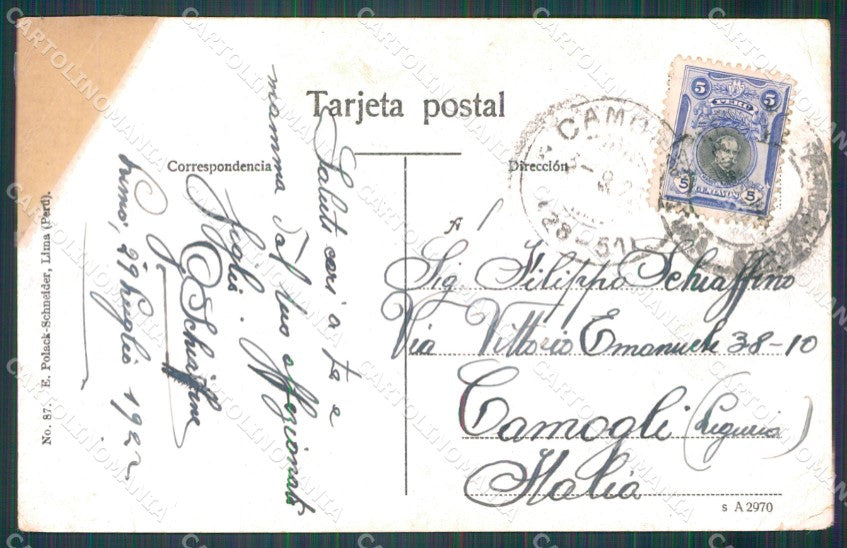 Tarjeta postal
Correspondencia
Dirección
Saluti cari a te e
mamma dal tuo affezionato
figlio.
Schiaffino
29 Luglio 1922
A
Sig. Filippo Schiaffino
Via Vittorio Emanuele 38-10
Camogli (Liguria)
Italia
No. 87. E. Polack-Schneider, Lima (Perú).
s A 2970
5 5
PERÚ
5 5
CARTOLINOMANIA